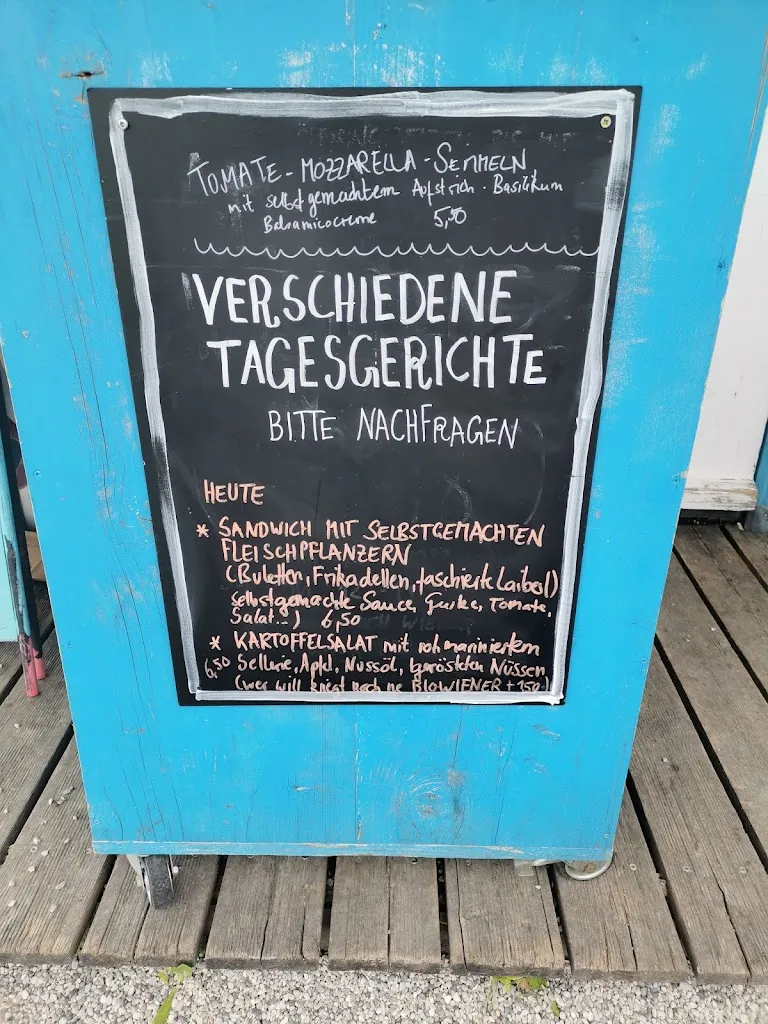 TOMATE-MOZZARELLA-SEMMELN
mit selbstgemachtem Aufstrich · Basilikum
Balsamicocreme 5,50
VERSCHIEDENE
TAGESGERICHTE
BITTE NACHFRAGEN
HEUTE
* SANDWICH MIT SELBSTGEMACHTEN
FLEISCHPFLANZERN
(Buletten, Frikadellen, faschierte Laiberl)
selbstgemachte Sauce, Gurke, Tomate,
Salat...) 6,50
* KARTOFFELSALAT mit roh mariniertem
6,50 Sellerie, Apfel, Nussöl, gerösteten Nüssen
(wer will kriegt noch ne BIOWIENER + 1,50)